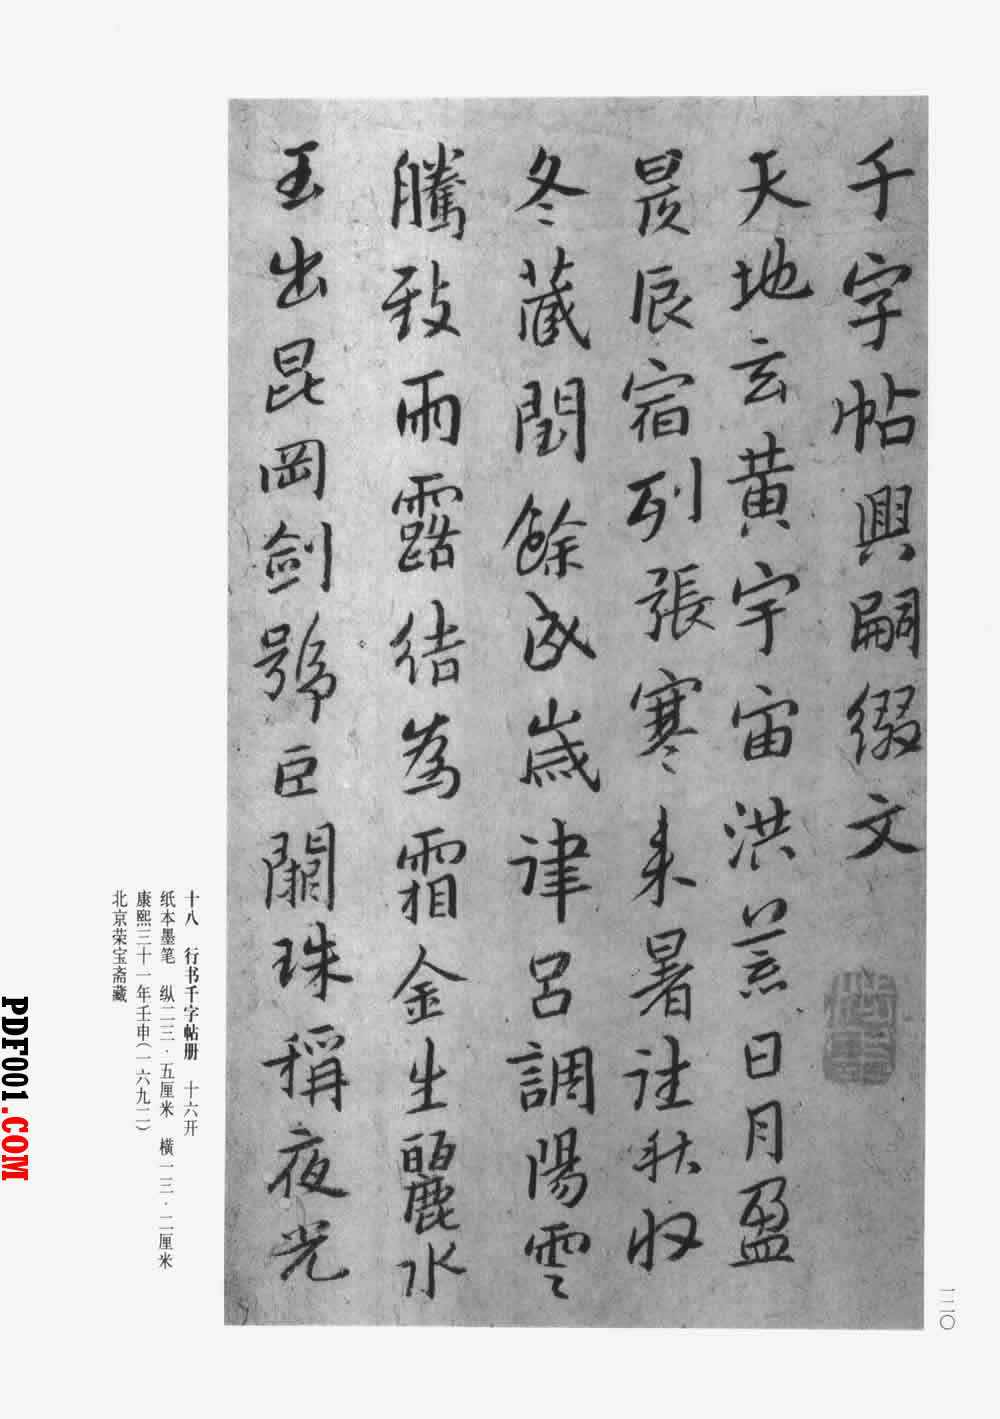 千字帖興嗣缀文
天地玄黄宇宙洪荒日月盈
昃辰宿列張寒来暑往秋收
冬藏閏餘成歲律呂調陽雲
騰致雨露结為霜金生麗水
玉出昆岡劍號巨闕珠稱夜光
十八 行书千字帖册 十六开
纸本墨笔 纵二三·五厘米 横一三·二厘米
康熙三十一年壬申(一六九二)
北京荣宝斋藏
一二〇
PDF001.COM